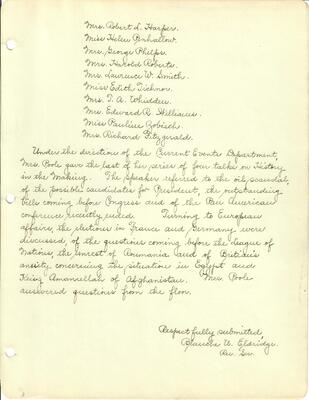 Mrs. Robert L. Harper.
Miss Helen Penhallow.
Mrs. George Phelps.
Mrs. Harold Roberts.
Mrs. Laurence W. Smith.
Miss Edith Tichnor.
Mrs. T. A. Whidden.
Mrs. Edward R. Williams.
Miss Pauline
Mrs. Richard Fitzgerald.
Under the direction of the Current Events Department,
Mrs. Poole gave the last of her series of four talks on History
in the Making. The speaker referred to the oil scandal,
of the possible candidates for President, the outstanding
bills coming before Congress and of the Pan American
conference recently ended. Turning to European
affairs, the elections in France and Germany were
discussed, of the questions coming before the League of
Nations, the unrest of Roumania and of Britain's
anxiety concerning the situations in Egypt and
King Amanullah of Afghanistan. Mrs. Poole
answered questions from the floor.
Respectfully submitted,
Blanche W. Eldridge.
Rec. Sec.